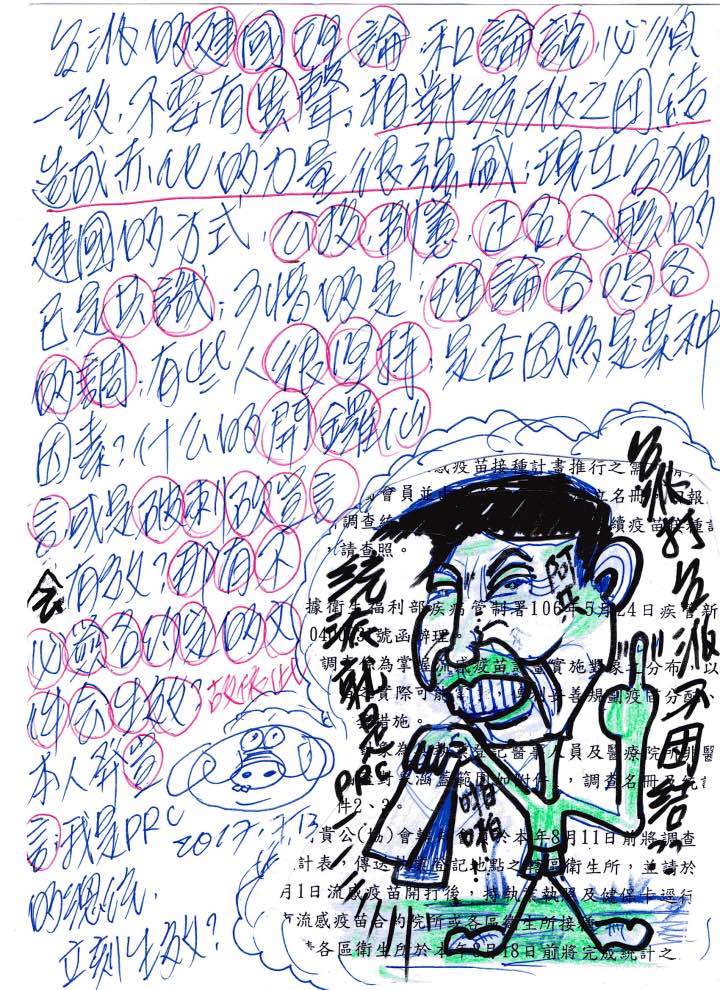 台派的建國理論和論說必須
一致,不要有異聲,相對統派之團結
造成赤化的力量很強盛;現在台獨
建國的方式,公投,制憲,正名入聯的
已是共識;可惜的是:理論各唱各
的調,有些人很堅持,是否因為是某种
因素?什么的開羅
言或是破剩宣言
会有效?那有不
必簽名約定的文
件会生效?故依此
本人發宣
言:我是PRC
2017.7.13
的總統,
立刻生效?
台派打台派不團結??
統派就是PRC
阿共
啪啪!
感疫苗接種計畫推行之
會員並由 立名冊 日報
調查結 續疫苗接種
,請查照。
據衛生福利部疾病管制署106年5月24日疾管新
號函辦理。
調查係為掌握流感疫苗計畫實施對象之分布,以
實際可能 妥善規劃疫苗分配、
措施。
為 登記醫事人員及醫療院所非醫
對象涵蓋範圍如附件 ,調查名冊及統計
件2、3。
貴公(協)會 於本年8月11日前將調查
計表,傳送執業登記地點之轄區衛生所,並請於
月1日流感疫苗開打後,持執業執照及健保卡逕行
流感疫苗合約院所或各區衛生所接種
各區衛生所於本年8月18日前將完成統計之